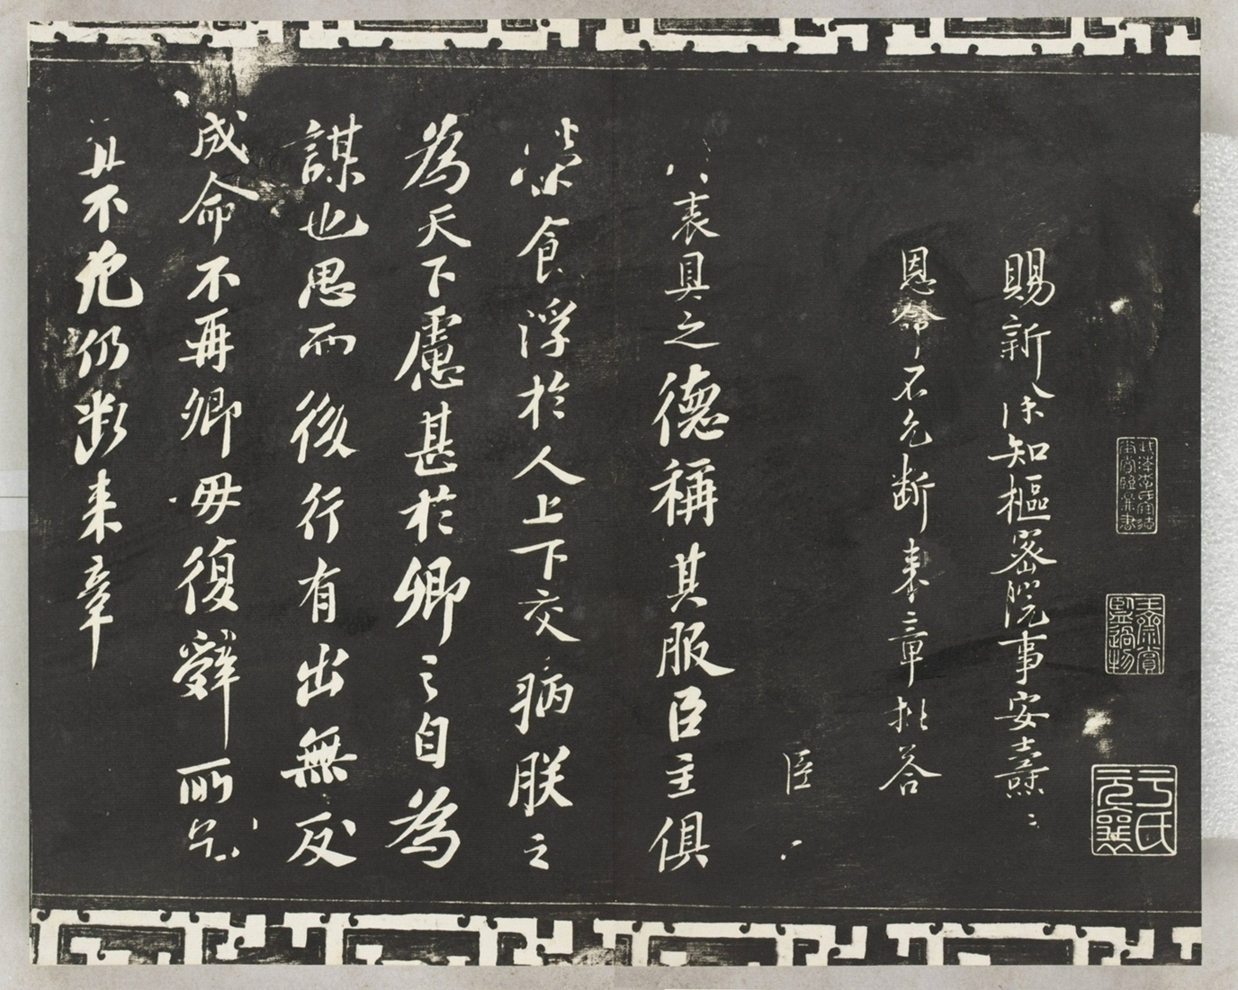 賜新除知樞密院事安燾
恩命不允斷來章批答
臣
表具之德稱其服臣主俱
榮食浮於人上下交病朕之
為天下慮甚於卿之自為
謀也思而後行有出無反
成命不再卿毋復辭所乞
不允仍斷來章